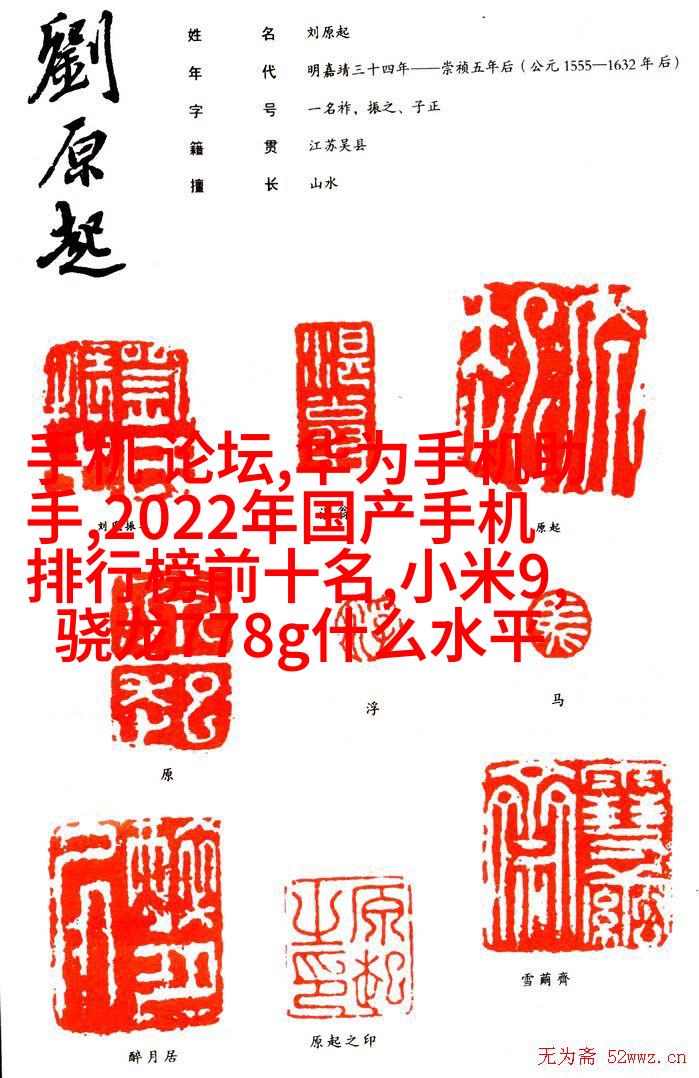 劉原起
姓 名 刘原起
年 代 明嘉靖三十四年——崇祯五年后（公元1555—1632年后）
字 号 一名祚，振之、子正
籍 贯 江苏吴县
擅 长 山水
手机论坛,华为手机助
手,2022年国产手机
排行榜前十名,小米9
骁龙778g什么水平
原起
浮
马
原
雪蕑齊
醉月居
原起之印
无为斋 52wwz.cn